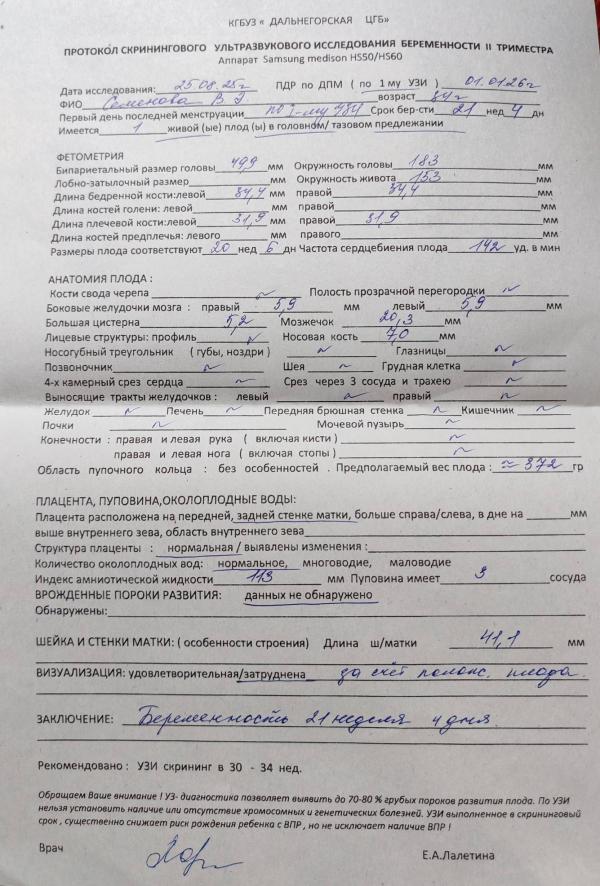 КГБУЗ « ДАЛЬНЕГОРСКАЯ ЦГБ»
ПРОТОКОЛ СКРИНИНГОВОГО УЛЬТРАЗВУКОВОГО ИССЛЕДОВАНИЯ БЕРЕМЕННОСТИ II ТРИМЕСТРА
Аппарат Samsung medison HS50/HS60
Дата исследования: 25.08.25г ПДР по ДПМ ( по 1 му УЗИ ) 01.01.26г
ФИО Семенова В.Э. возраст 34г
Первый день последней менструации по 1-му УЗИ Срок бер-сти 21 нед 4 дн
Имеется 1 живой (ые) плод (ы) в головном/ тазовом предлежании
ФЕТОМЕТРИЯ
Бипариетальный размер головы 49,9 мм Окружность головы 183 мм
Лобно-затылочный размер мм Окружность живота 153 мм
Длина бедренной кости:левой 34,4 мм правой 34,4 мм
Длина костей голени: левой мм правой мм
Длина плечевой кости:левой 31,9 мм правой 31,9 мм
Длина костей предплечья: левого мм правого мм
Размеры плода соответствуют 20 нед 6 дн Частота сердцебиения плода 142 уд. в мин
АНАТОМИЯ ПЛОДА :
Кости свода черепа ~ Полость прозрачной перегородки ~
Боковые желудочки мозга : правый 5,9 мм левый 5,9 мм
Большая цистерна 5,2 Мозжечок 20,3 мм
Лицевые структуры: профиль ~ Носовая кость 7,0 мм
Носогубный треугольник ( губы, ноздри ) ~ Глазницы ~
Позвоночник ~ Шея ~ Грудная клетка ~
4-х камерный срез сердца ~ Срез через 3 сосуда и трахею ~
Выносящие тракты желудочков : левый ~ правый ~
Желудок ~ Печень ~ Передняя брюшная стенка ~ Кишечник ~
Почки ~ Мочевой пузырь ~
Конечности : правая и левая рука ( включая кисти ) ~
правая и левая нога ( включая стопы ) ~
Область пупочного кольца : без особенностей . Предполагаемый вес плода : ≈ 372 гр
ПЛАЦЕНТА, ПУПОВИНА,ОКОЛОПЛОДНЫЕ ВОДЫ:
Плацента расположена на передней, задней стенке матки, больше справа/слева, в дне на мм
выше внутреннего зева, область внутреннего зева
Структура плаценты : нормальная / выявлены изменения :
Количество околоплодных вод: нормальное, многоводие, маловодие
Индекс амниотической жидкости 113 мм Пуповина имеет 3 сосуда
ВРОЖДЕННЫЕ ПОРОКИ РАЗВИТИЯ: данных не обнаружено
Обнаружены:
ШЕЙКА И СТЕНКИ МАТКИ: ( особенности строения) Длина ш/матки 41,1 мм
ВИЗУАЛИЗАЦИЯ: удовлетворительная/затруднена за счёт полож. плода.
ЗАКЛЮЧЕНИЕ: Беременность 21 неделя 4 дня.
Рекомендовано : УЗИ скрининг в 30 - 34 нед.
Обращаем Ваше внимание ! УЗ- диагностика позволяет выявить до 70-80 % грубых пороков развития плода. По УЗИ
нельзя установить наличие или отсутствие хромосомных и генетических болезней. УЗИ выполненное в скрининговый
срок , существенно снижает риск рождения ребенка с ВПР , но не исключает наличие ВПР !
Врач Е.А.Лалетина